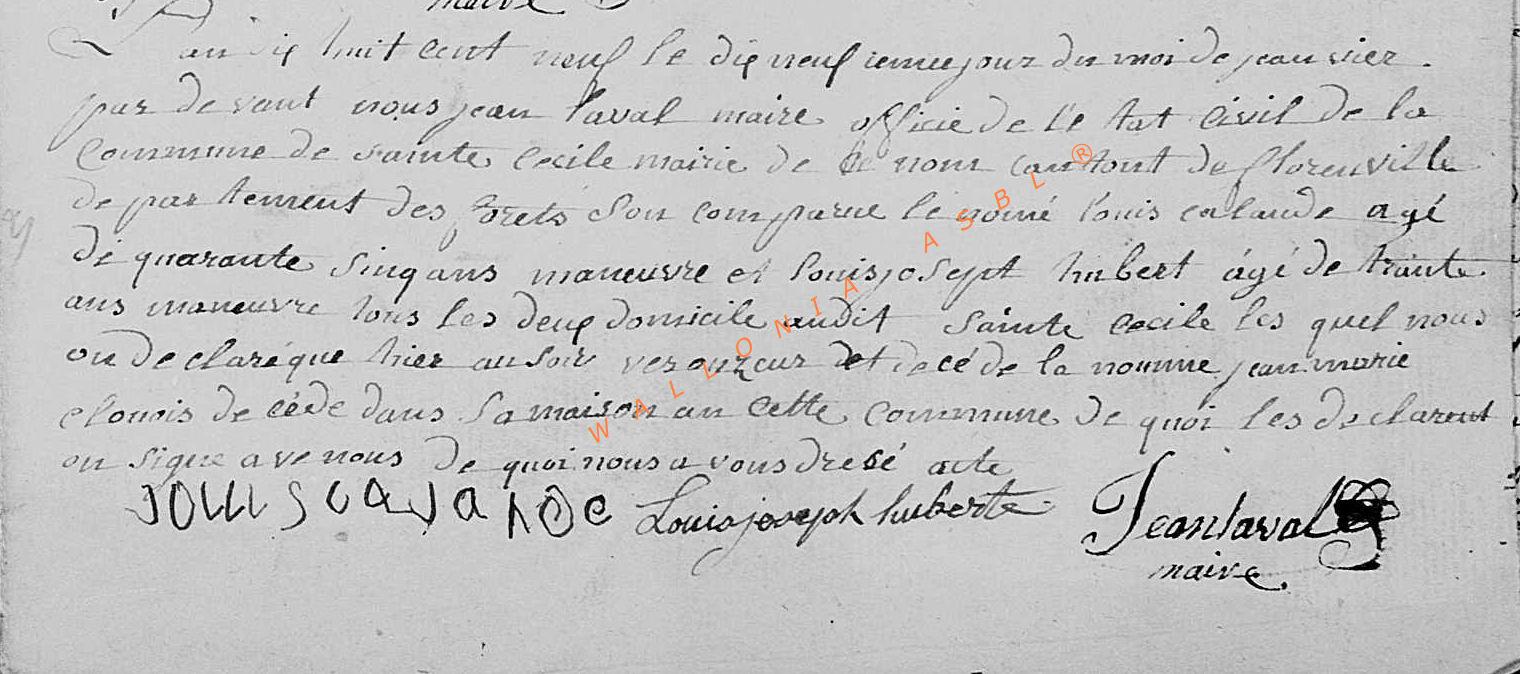 maire
L'an dix huit cent neuf le dix neuf iemee jour du moi de jeanvier.
par devant nous jean laval maire officie de l'é tat civil de la
Commune de sainte Cecile mairie de ce nom cantont de florenville
de par tement des forets Son comparue le nomé louis calande agé
dé quarante Sinq ans maneuvre et louis josept hubert ágé de trante
ans maneuvre tous les deux domicile audit Sainte Cecile les quel nous
on declaré que hier au soir ver onze eur et decé de la nomme jean marie
clonois de céde dans Sa maison an cette Commune de quoi les declarent
on signe ave nous de quoi nous a vons dresé acte
louis calande Louis joseph huberte Jean laval
maire
WALLONIA ASBL ®